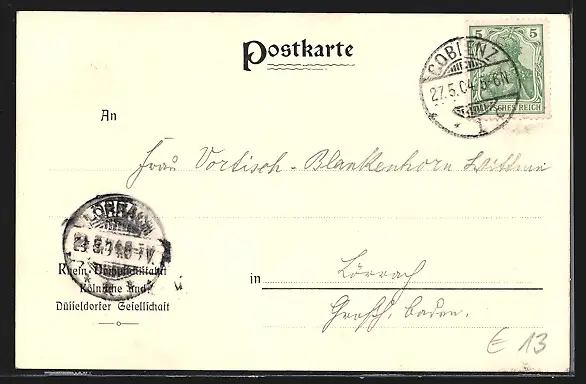 Postkarte
5 5
DEUTSCHES REICH
COBLENZ
27.5.04. 5-6N
1 c
An
Frau Vortisch-Blankenhorn Wittwe
LÖRRACH
Rhein-Dampfschiffahrt
Kölnische und
Düsseldorfer Gesellschaft
in Lörrach
Großh. Baden.
€ 13